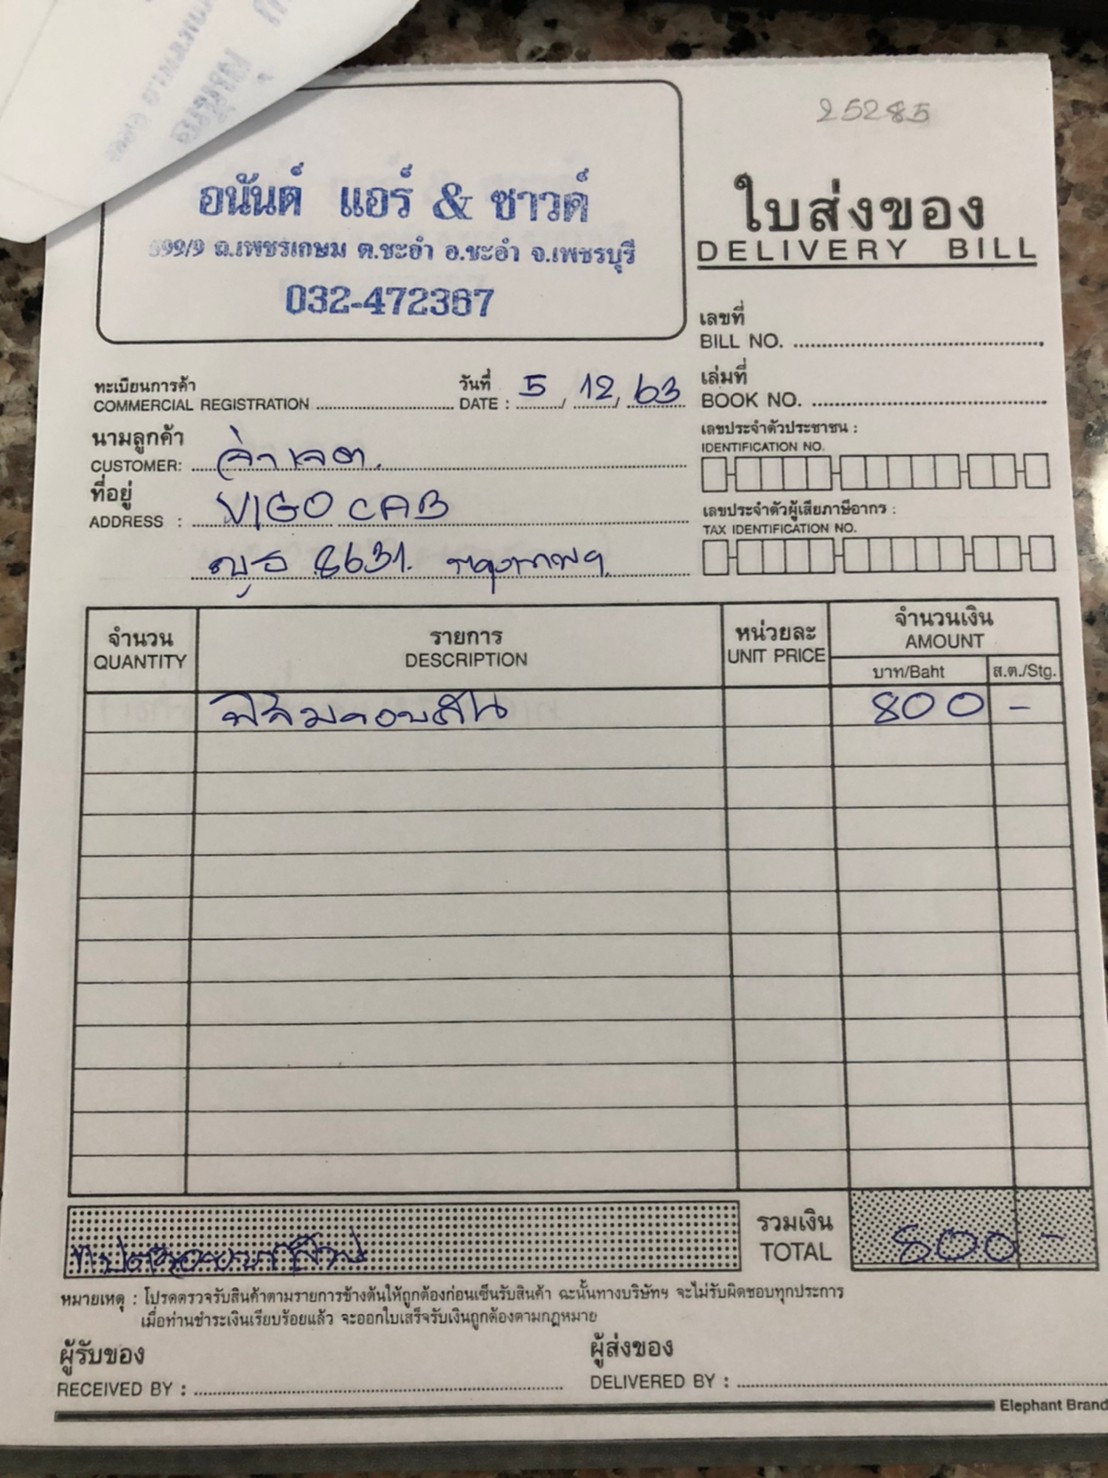 25285
อนันต์ แอร์ & ซาวด์
899/9 ถ.เพชรเกษม ต.ชะอำ อ.ชะอำ จ.เพชรบุรี
032-472367
ใบส่งของ
DELIVERY BILL
เลขที่
BILL NO.
ทะเบียนการค้า
COMMERCIAL REGISTRATION
วันที่
DATE : 5 / 12 / 63
เล่มที่
BOOK NO.
นามลูกค้า
CUSTOMER: จ่าเจต
เลขประจำตัวประชาชน :
IDENTIFICATION NO.
ที่อยู่
ADDRESS : VIGO CAB
8631 กรุงเทพฯ
เลขประจำตัวผู้เสียภาษีอากร :
TAX IDENTIFICATION NO.
จำนวน
QUANTITY
รายการ
DESCRIPTION
หน่วยละ
UNIT PRICE
จำนวนเงิน
AMOUNT
บาท/Baht ส.ต./Stg.
ฟิล์มรอบคัน 800 -
รวมเงิน
TOTAL 800 -
หมายเหตุ : โปรดตรวจรับสินค้าตามรายการข้างต้นให้ถูกต้องก่อนเซ็นรับสินค้า ฉะนั้นทางบริษัทฯ จะไม่รับผิดชอบทุกประการ
เมื่อท่านชำระเงินเรียบร้อยแล้ว จะออกใบเสร็จรับเงินถูกต้องตามกฎหมาย
ผู้รับของ
RECEIVED BY :
ผู้ส่งของ
DELIVERED BY :
Elephant Brand